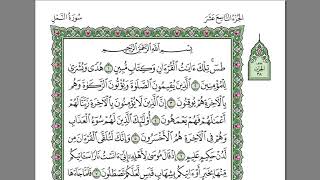 الجزء التاسع عشر
سورة النمل
بسم الله الرحمن الرحيم
طس تلك ءايت القرءان وكتاب مبين ١ هدى وبشرى
للمؤمنين ٢ الذين يقيمون الصلوة ويؤتون الزكوة وهم
بالآخرة هم يوقنون ٣ إن الذين لا يؤمنون بالآخرة زينا لهم
أعملهم فهم يعمهون ٤ أولئك الذين لهم سوء العذاب
وهم في الآخرة هم الأخسرون ٥ وإنك لتلقى القرءان من
لدن حكيم عليم ٦ إذ قال موسى لأهله إني ءانست نارا سئاتيكم
منها بخبر أو ءاتيكم بشهاب قبس لعلكم تصطلون ٧ فلما جاءها